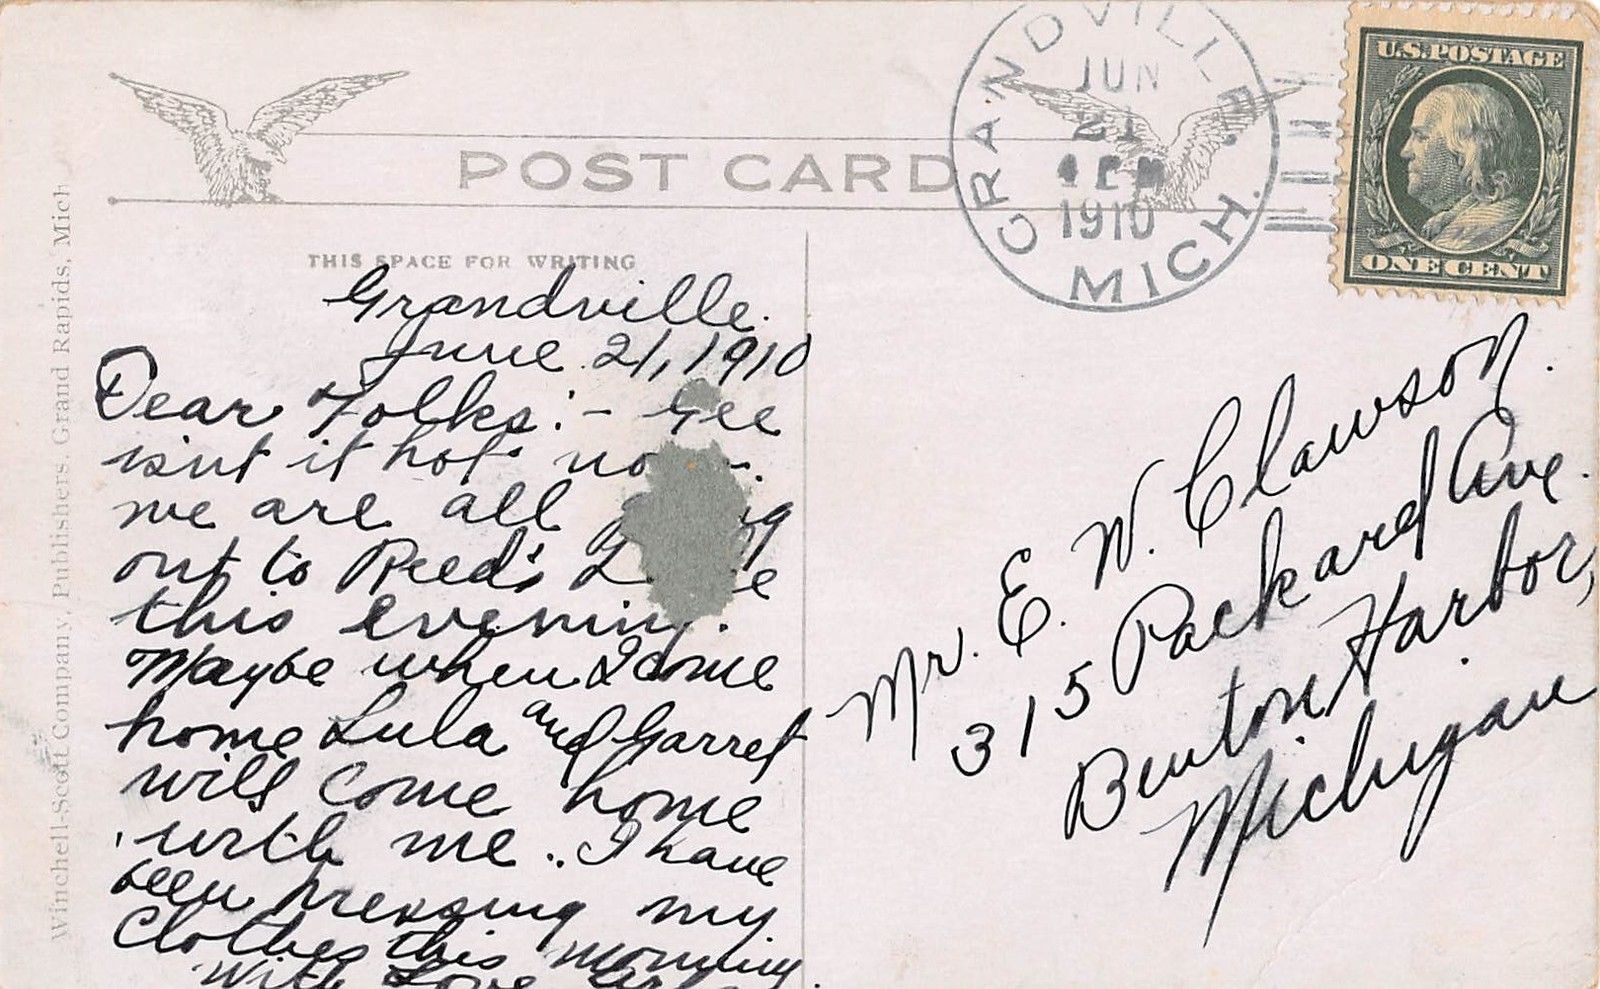 GRANDVILLE
JUN
21
4 PM
1910
MICH.
U.S. POSTAGE
ONE CENT
POST CARD
THIS SPACE FOR WRITING
Winchell-Scott Company, Publishers. Grand Rapids, Mich
Grandville.
June 21, 1910
Dear Folks:- Gee
isnt it hot
we are all
out to Reed's
this evening.
Maybe when I come
home Lula and Garret
will come home
with me.. I have
been pressing my
Clothes this morning.
With Love
Mr. E. W. Clawson.
315 Packard Ave.
Benton Harbor,
Michigan